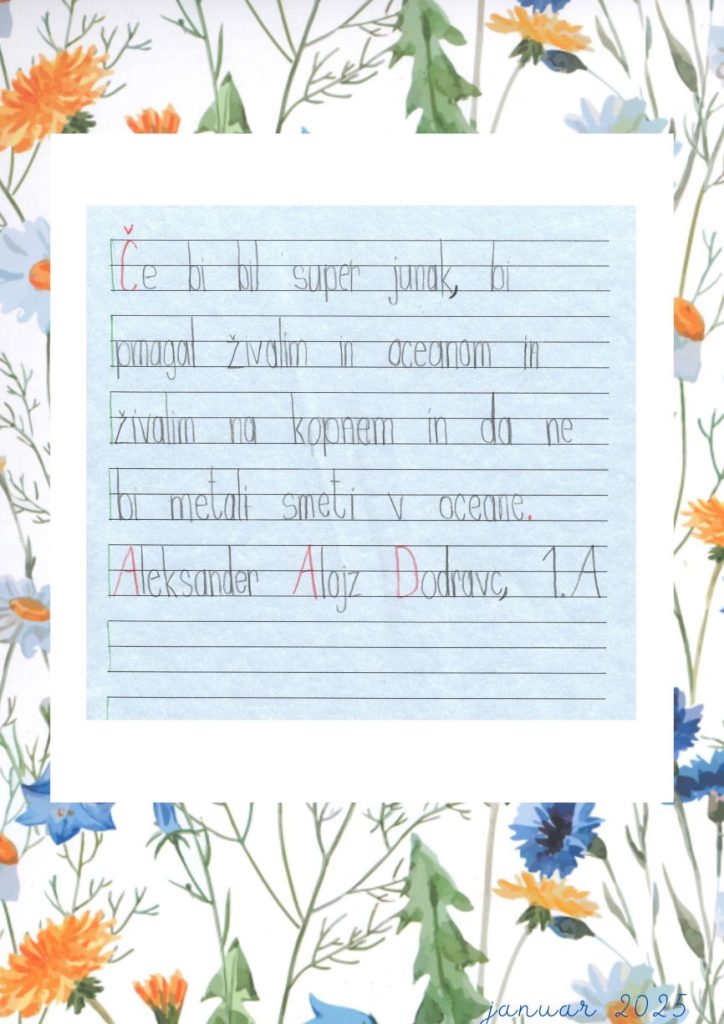 Če bi bil super junak, bi
pmagal živalim in oceanom in
živalim na kopnem in da ne
bi metali smeti v oceane.
Aleksander Alojz Dodravc, 1.A
januar 2025